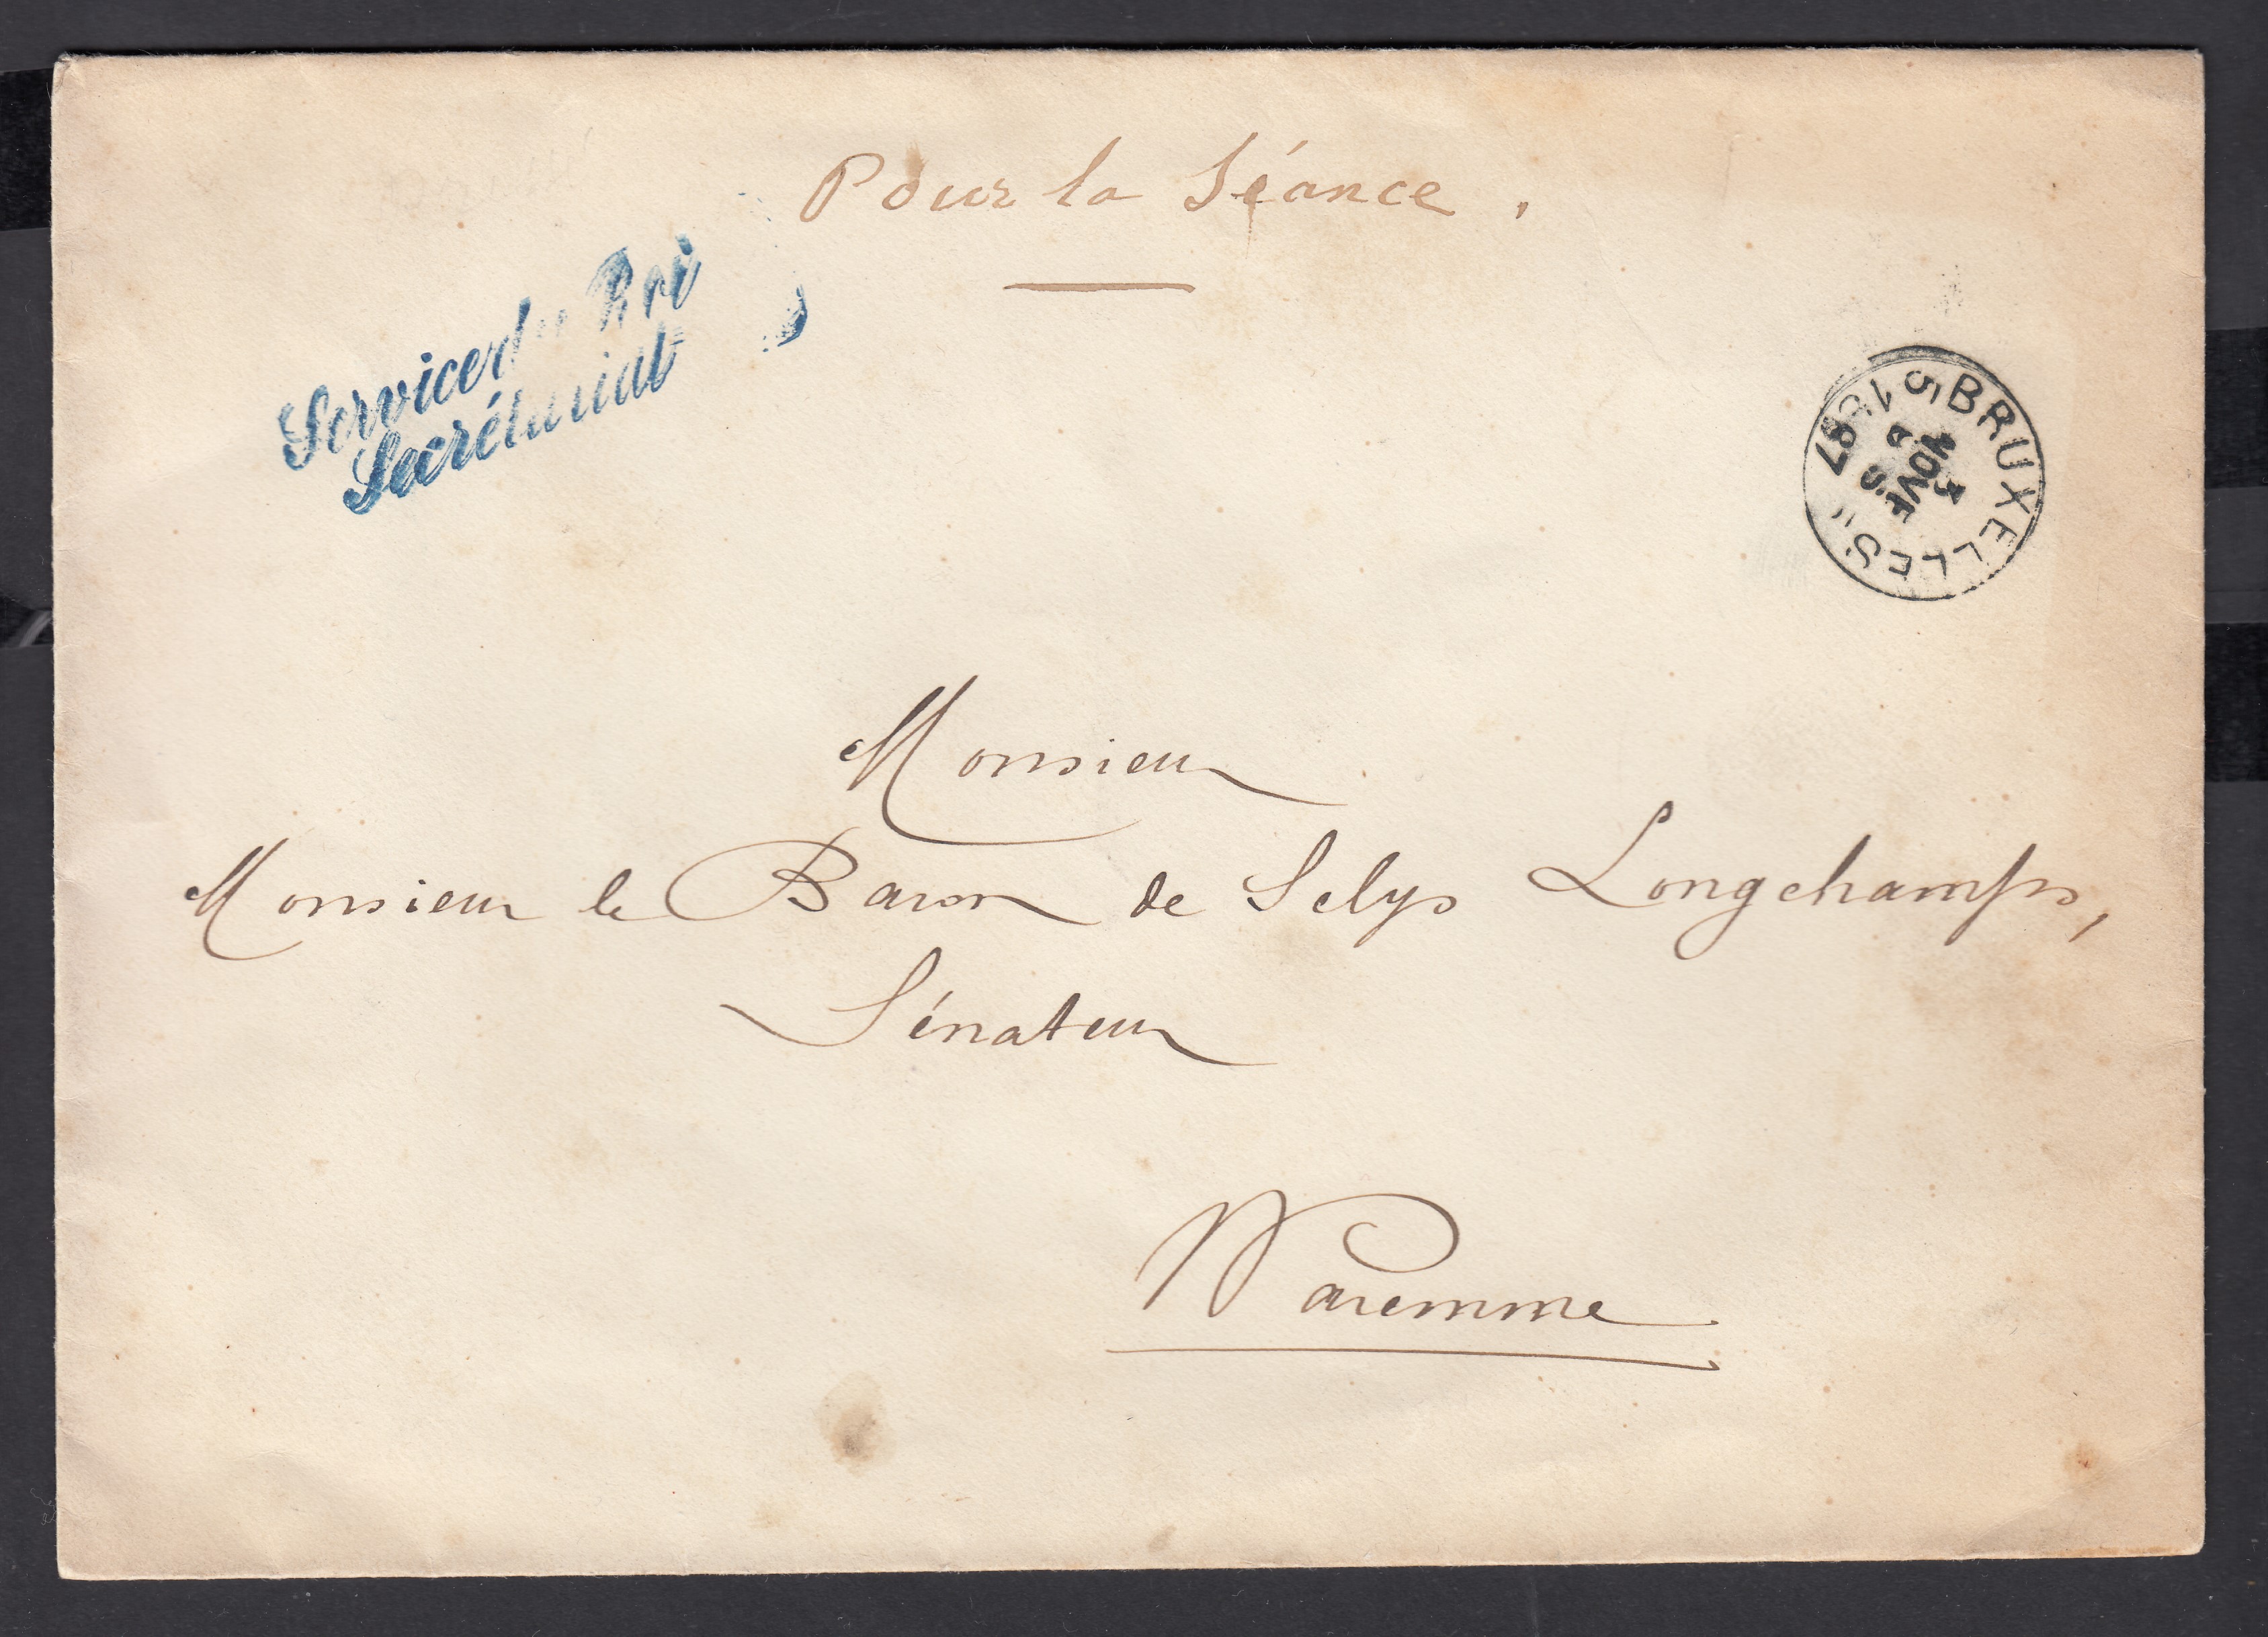 Pour la Séance.
Service du Roi
Secrétariat
BRUXELLES 5 1887
NOVE
Monsieur
Monsieur le Baron de Selys Longchamps,
Sénateur
Waremme